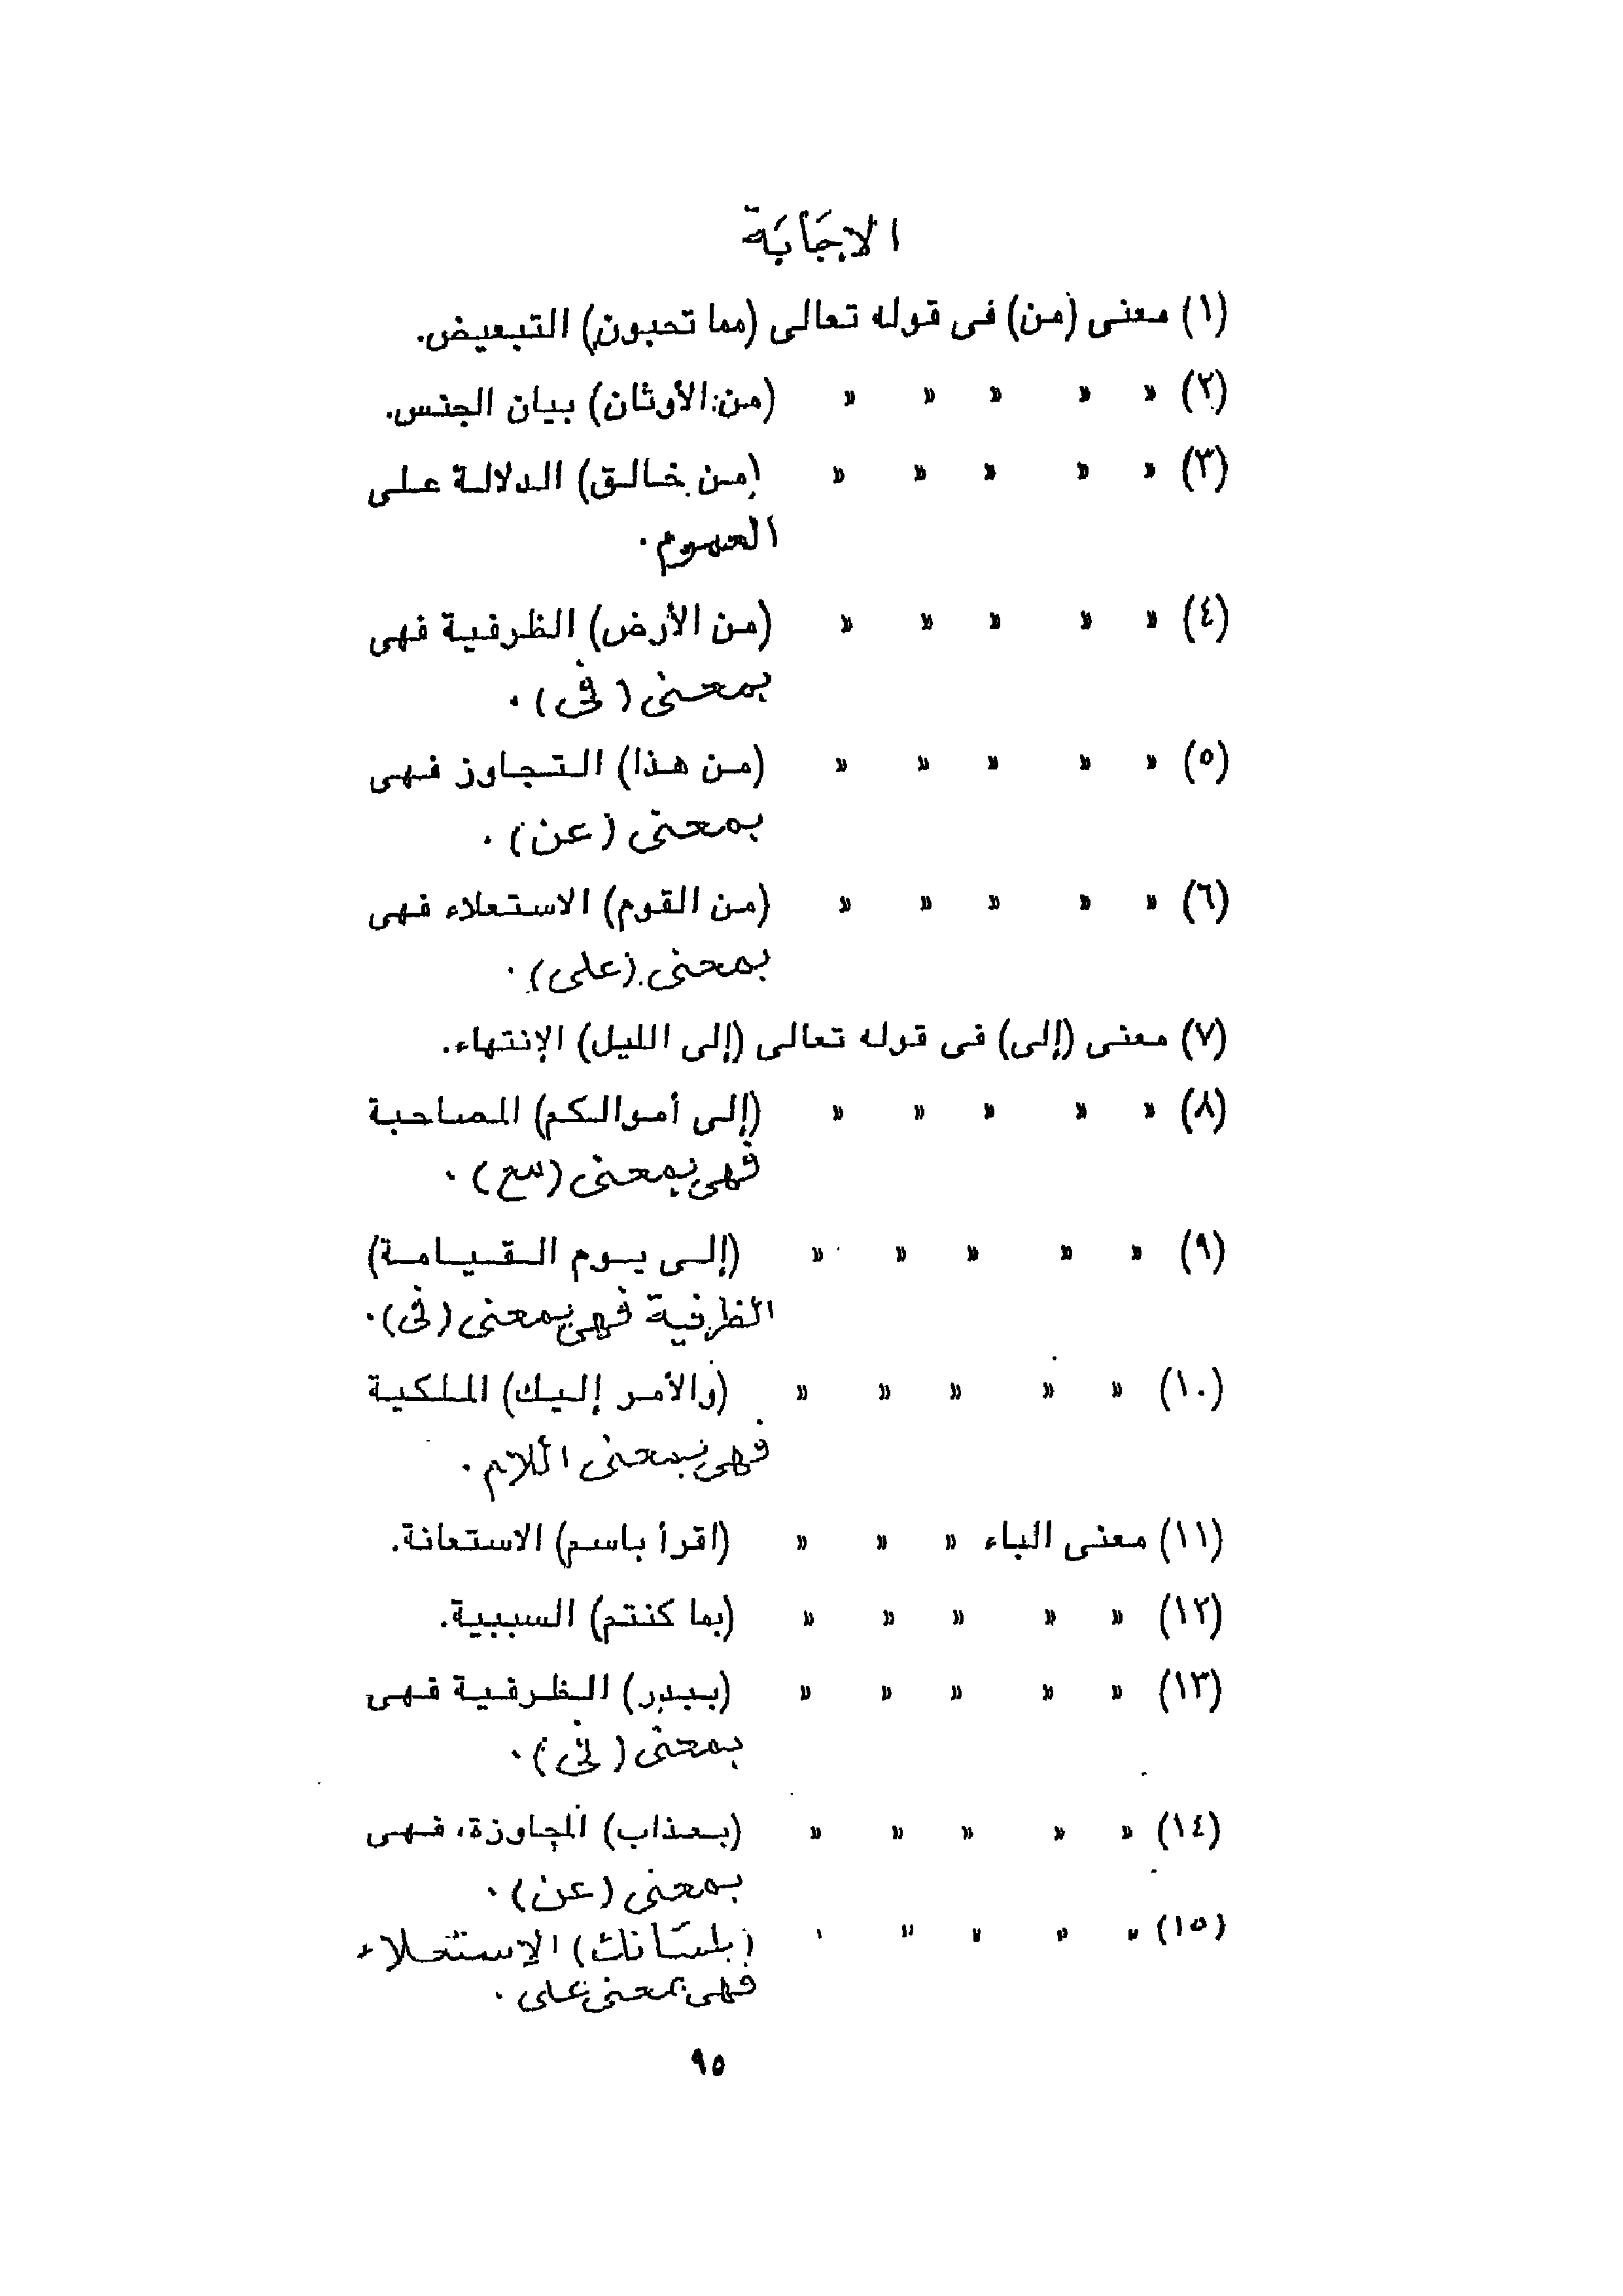 الإجَابَة
(١) معنى (من) فى قوله تعالى (مما تحبون) التبعيض.
(٢) » » » » » (من الأوثان) بيان الجنس.
(٣) » » » » » (من خالق) الدلالة على
العموم.
(٤) » » » » » (من الأرض) الظرفية فهى
بمعنى (فى).
(٥) » » » » » (من هذا) التجاوز فهى
بمعنى (عن).
(٦) » » » » » (من القوم) الاستعلاء فهى
بمعنى (على).
(٧) معنى (إلى) فى قوله تعالى (إلى الليل) الإنتهاء.
(٨) » » » » » (إلى أموالكم) المصاحبة
فهى بمعنى (مع).
(٩) » » » » » (إلى يوم القيامة)
الظرفية فهى بمعنى (فى).
(١٠) » » » » » (والأمر إليك) الملكية
فهى بمعنى اللام.
(١١) معنى الباء » » » (اقرأ باسم) الاستعانة.
(١٢) » » » » » (بما كنتم) السببية.
(١٣) » » » » » (ببدر) الظرفية فهى
بمعنى (فى).
(١٤) » » » » » (بعذاب) المجاوزة، فهى
بمعنى (عن).
(١٥) » » » » » (بلسَانك) الإستعلاء
فهى بمعنى على.
٩٥